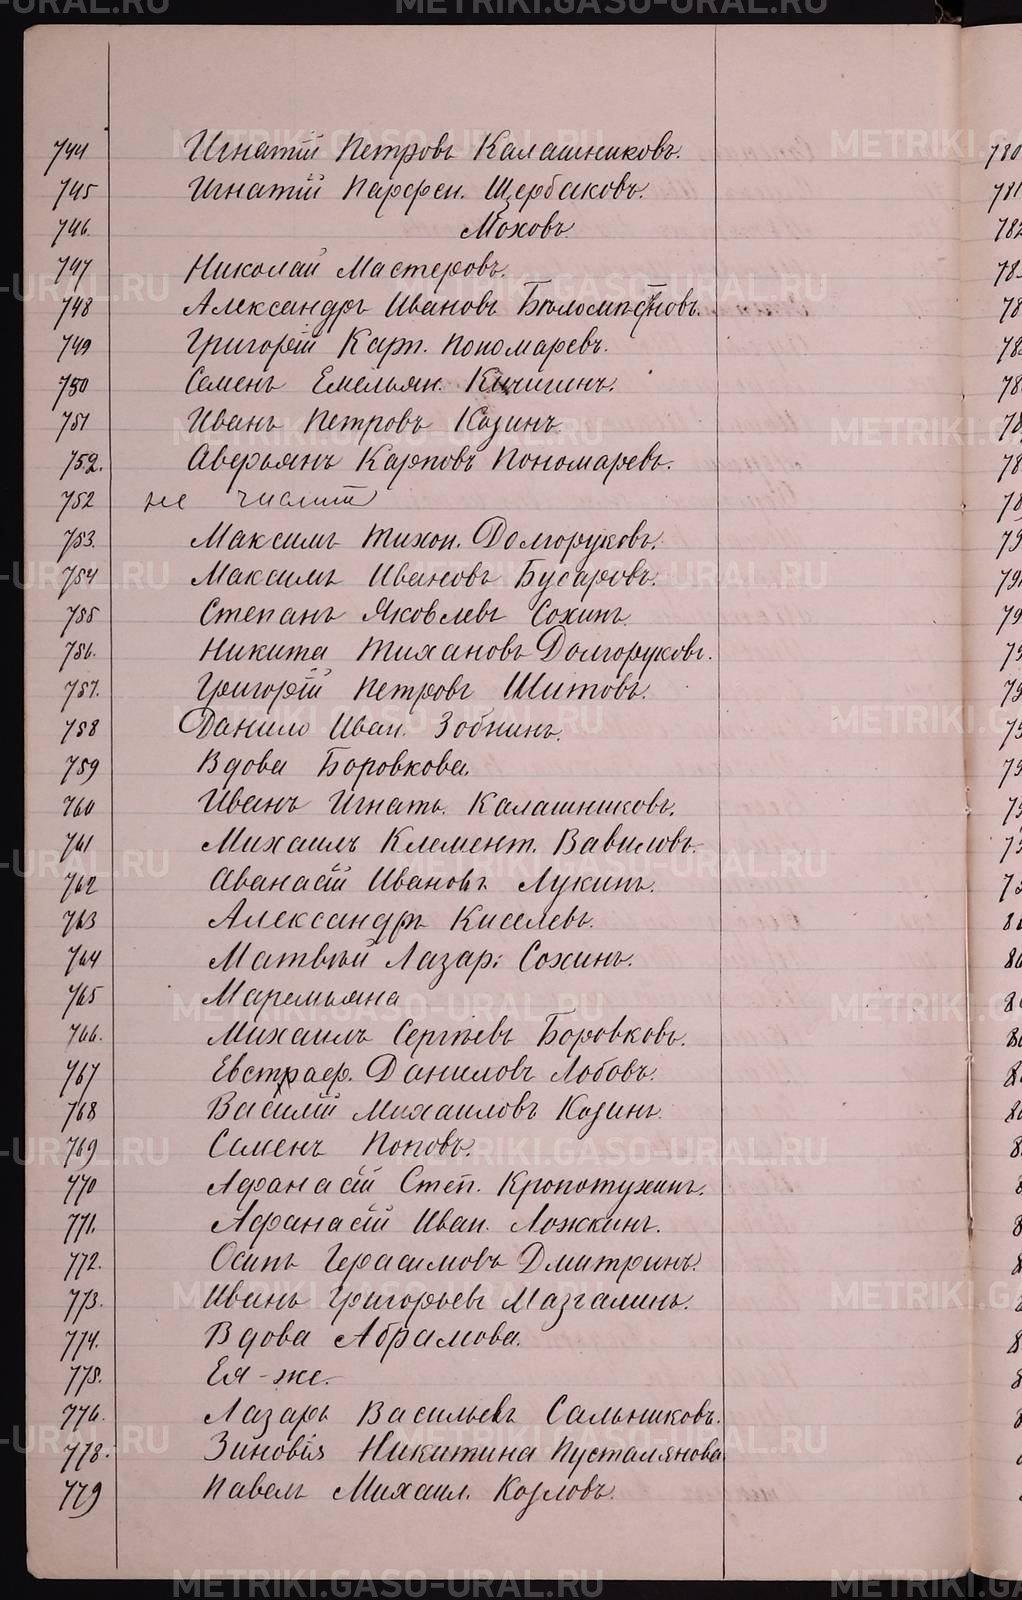 METRIKI.GASO-URAL.RU
744 Игнатій Петровъ Калашниковъ. 780
745 Игнатій Парфен. Щербаковъ. 781
746. Моховъ 782
747 Николай Мастеровъ. 78
748 Александръ Ивановъ 78
749 Григорій Карп. Пономаревъ. 78
750 Семенъ Емельян. Кичигинъ. 78
751 Иванъ Петровъ Козинъ. 78
752. Аверьянъ Карповъ Пономаревъ. 78
752 не числит 78
753. Максимъ Тихон. Долгоруковъ. 79
754 Максимъ Ивановъ Бусаровъ. 79
755 Степанъ Яковлевъ Сохинъ 79
756. Никита Тихановъ Долгоруковъ. 79
757. Григорій Петровъ Шитовъ. 79
758 Данило Иван. Зобнинъ. 79
759 Вдова Боровкова. 79
760 Иванъ Игнать. Калашниковъ. 79
761 Михаилъ Клемент. Вавиловъ. 79
762 Аѳанасій Ивановъ Лукинъ. 79
763 Александръ Киселевъ. 80
764 Матвѣй Лазар. Сохинъ. 80
765 Маремьяна 80
766. Михаилъ Сергѣевъ Боровковъ. 80
767 Евстраф. Даниловъ Лобовъ. 8
768 Василій Михаиловъ Козинъ. 80
769 Семенъ Поповъ. 8
770 Афанасій Степ. Кропотухинъ. 8
771. Афанасій Иван. Ложкинъ. 8
772. Осипъ Герасимовъ Дмитринъ. 8
773. Иванъ Григорьевъ Мазгалинъ.
774. Вдова Абрамова. 8
775. Ея-же. 8
776. Лазарь Васильевъ Сальниковъ. 8
778. Зиновія Никитина Пусталянова
779 Павелъ Михаил. Козловъ.